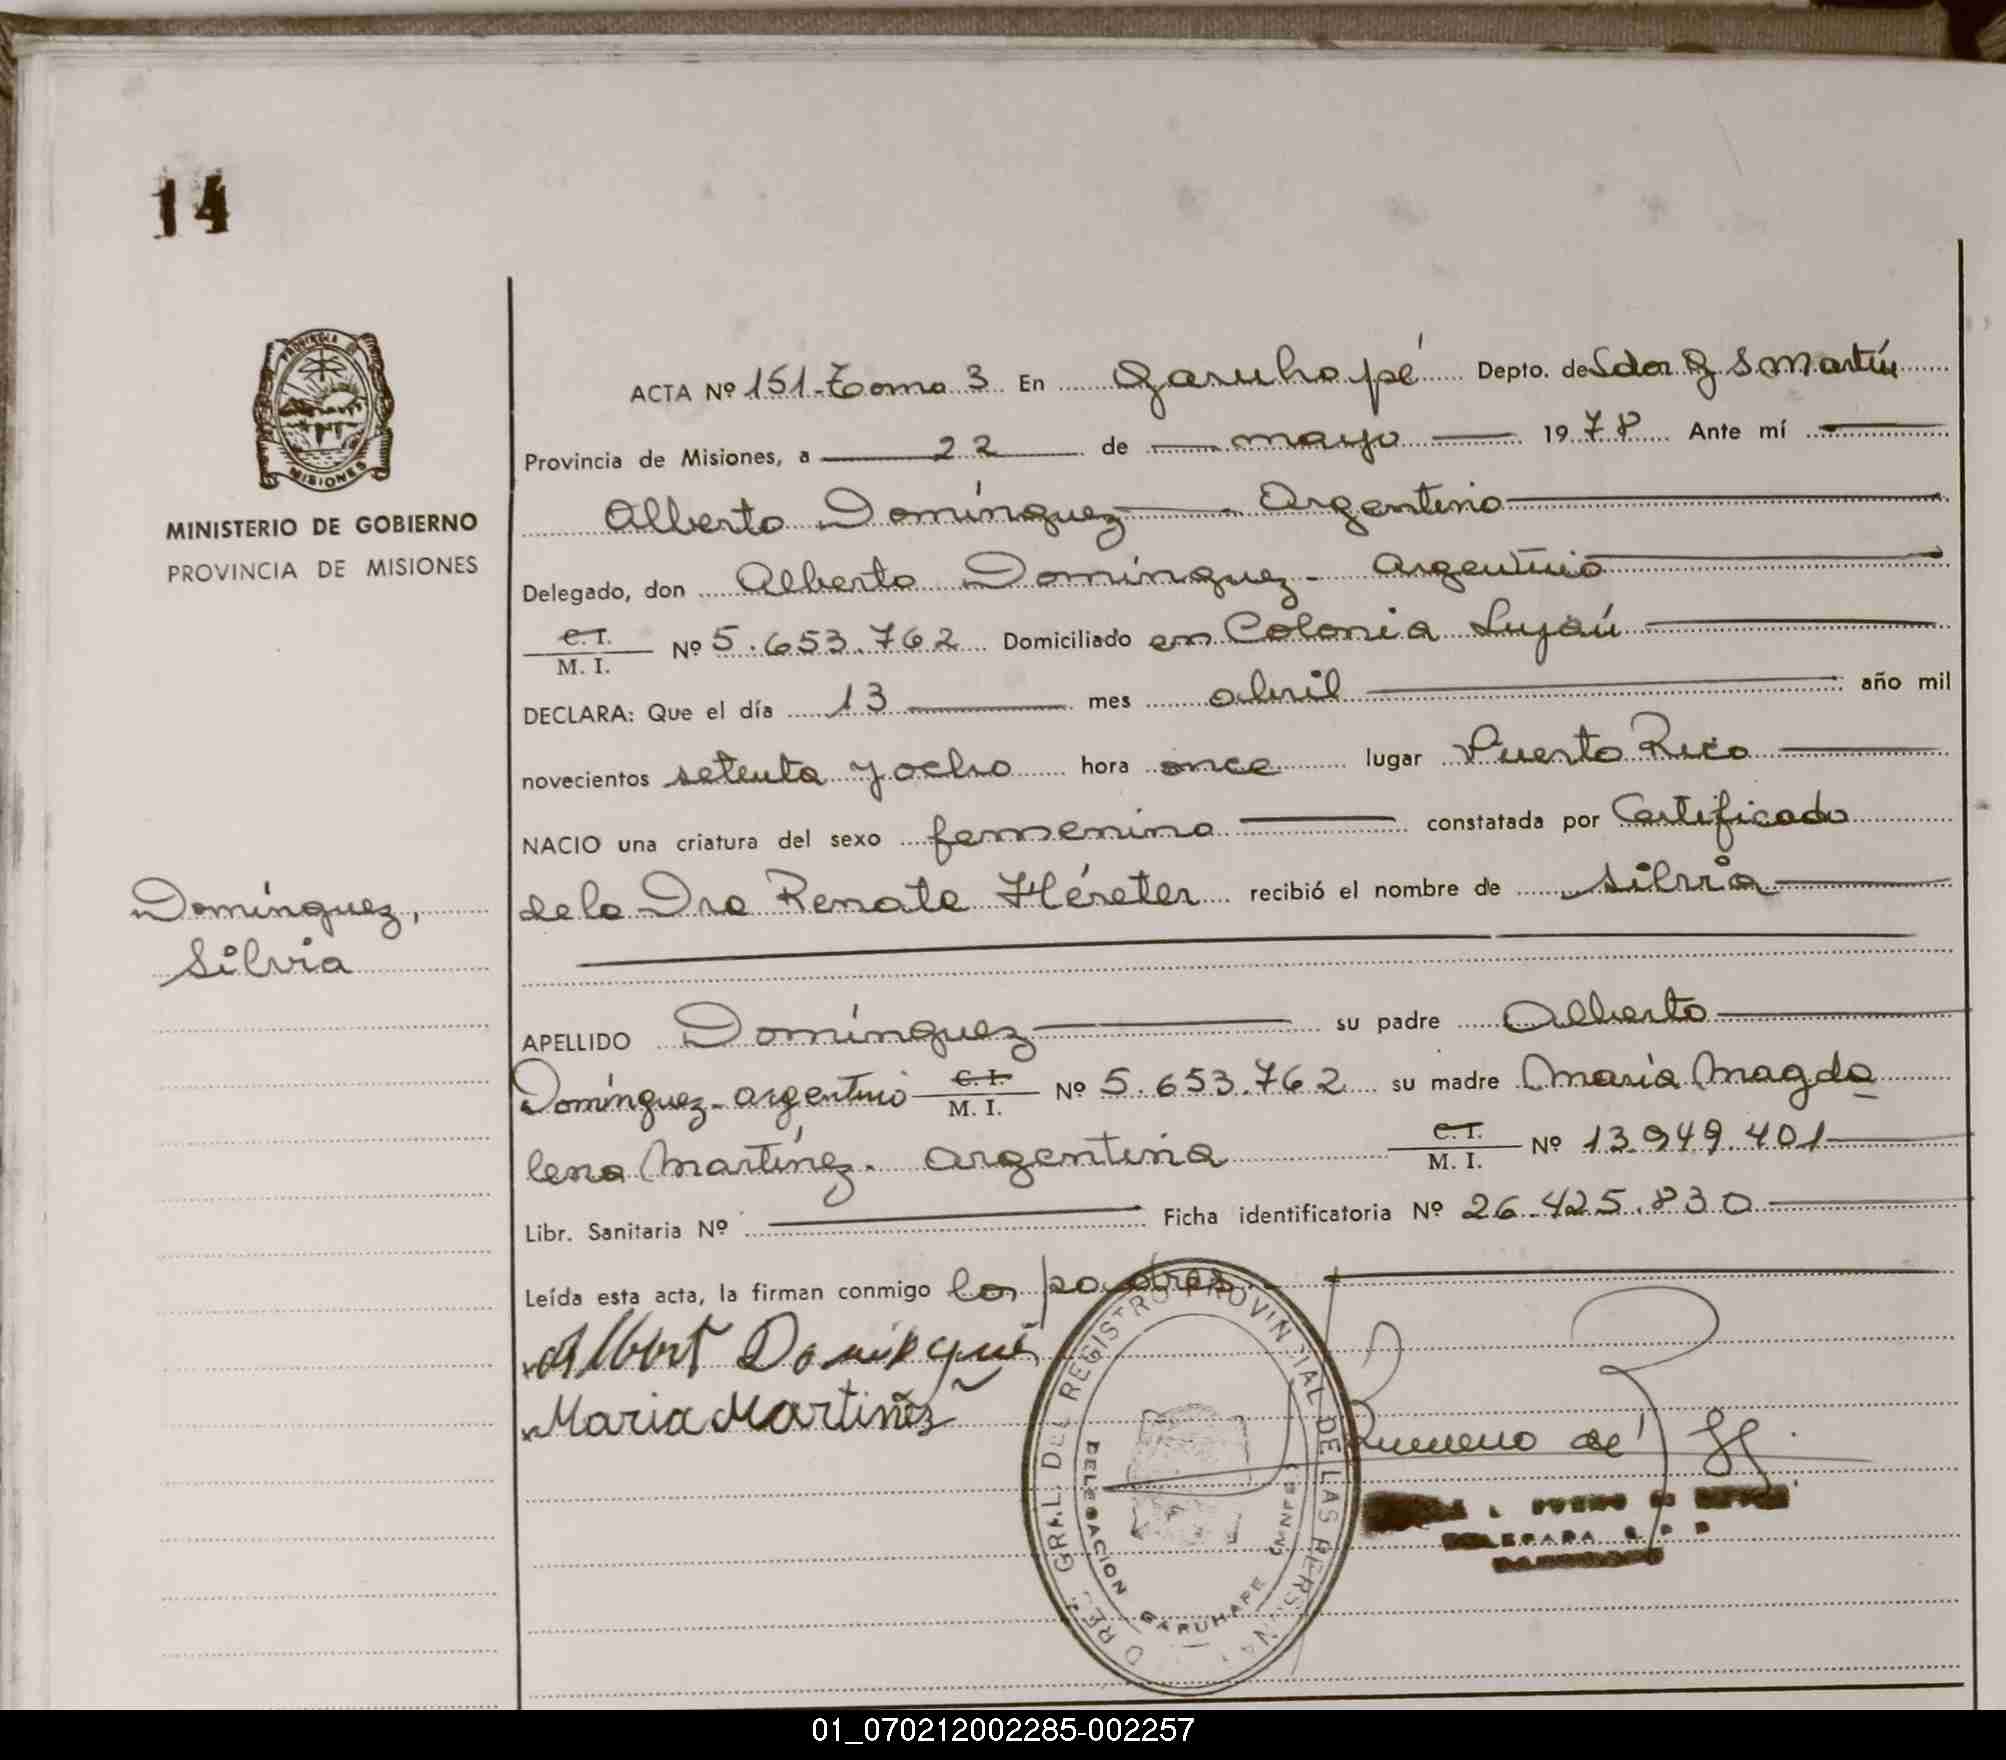 14
PROVINCIA DE
MISIONES
MINISTERIO DE GOBIERNO
PROVINCIA DE MISIONES
Domínguez,
Silvia
ACTA Nº 151-Tomo 3 En Garuhapé Depto. de Ldor G S Martín
Provincia de Misiones, a 22 de mayo 1978 Ante mí
Alberto Domínguez Argentino
Delegado, don Alberto Domínguez - Argentino
C.I.
M. I. Nº 5.653.762 Domiciliado en Colonia Luján
DECLARA: Que el día 13 mes abril año mil
novecientos setenta y ocho hora once lugar Puerto Rico
NACIO una criatura del sexo femenino constatada por Certificado
de la Dra Renata Héreter recibió el nombre de Silvia
APELLIDO Domínguez su padre Alberto
Domínguez - argentino C.I. M. I. Nº 5.653.762 su madre María Magda
lena Martínez. argentina C.I. M. I. Nº 13.949.401
Libr. Sanitaria Nº Ficha identificatoria Nº 26.425.830
Leída esta acta, la firman conmigo los padres
Maria Martinez
GRAL. DEL REGISTRO PROVINCIAL DE LAS PERSONAS
DELEGACION GARUHAPE
DELEGADA
01_070212002285-002257